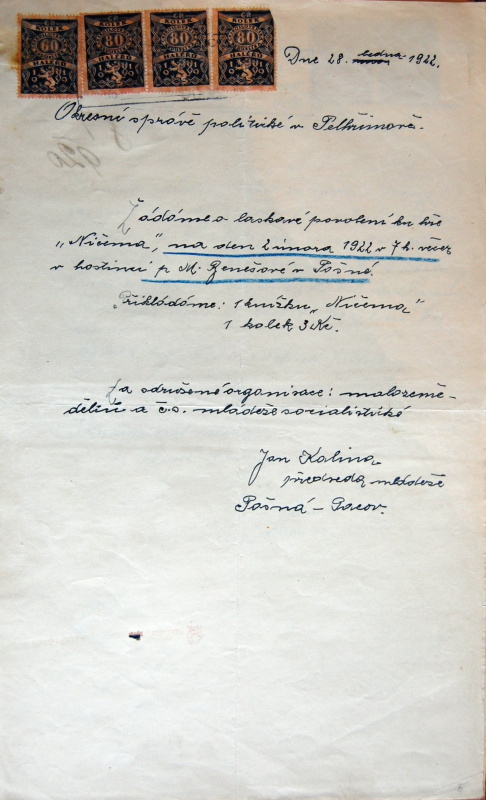 KOLEK 60 HALÉŘŮ KOLEK 80 HALÉŘŮ KOLEK 80 HALÉŘŮ KOLEK 80 HALÉŘŮ
Dne 28. ledna 1922.
Okresní správě politické v Pelhřimově.
Žádáme o laskavé povolení ku hře
„Ničema", na den 2 února 1922 v 7 h. večer
v hostinci p. M. Benešové v Pošné.
Přikládáme: 1 knížku „Ničema"
1 kolek 3 Kč.
Za sdružené organisace: malozemě-
dělců a č.s. mládeže socialistické
Jan Kalina
předseda mládeže
Pošná – Pacov.